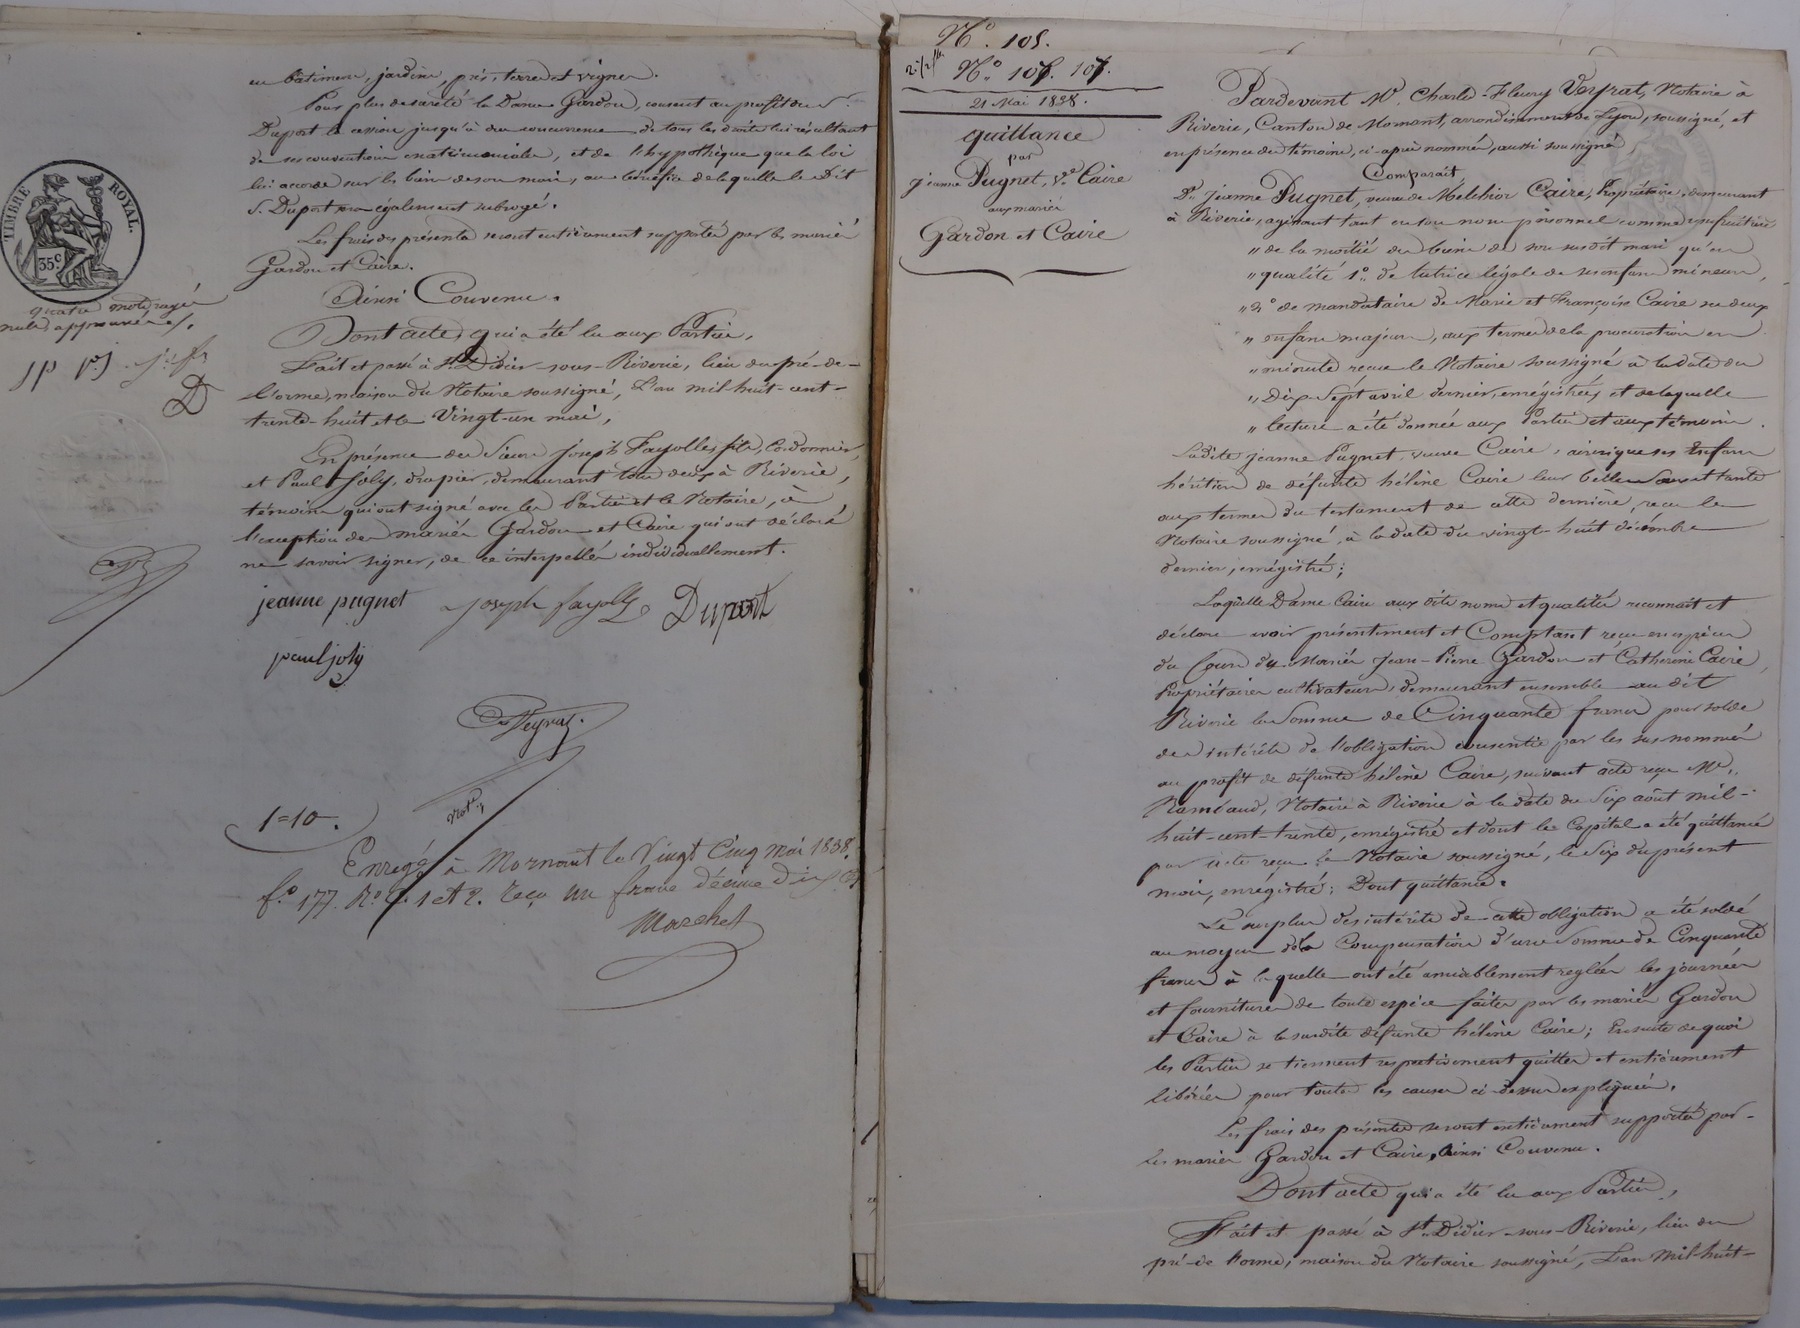 en bâtimens, jardins, prés, terres et vignes.
Pour plus de sureté la Dame Gardon, consent au profit du S.
Duport la cession jusqu'à due concurrence de tous les droits lui résultant
de ses conventions matrimoniales, et de l'hypothèque que la loi
lui accorde sur les biens de son mari, au bénéfice de laquelle le dit
S. Duport sera également subrogé.
Les frais des présentes seront entièrement supportés par les mariés
Gardon et Caire.
Ainsi Convenu.
Dont acte, qui a été lu aux Parties,
Fait et passé à St. Didier-sous-Riverie, lieu du pré-de-
l'orme, maison du Notaire soussigné, L'an mil-huit-cent-
trente-huit et le Vingt-un mai,
En présence des Sieurs joseph Fayolle fils, Cordonnier,
et Paul Joly, drapier, demeurant tous deux à Riverie,
témoins qui ont signé avec les Parties et le Notaire, à
l'exception des mariés Gardon et Caire qui ont déclaré
ne savoir signer, de ce interpellés individuellement.
TIMBRE ROYAL.
35c
quatre mots rayés
nuls approuvés
jp pj jf
D
jeanne pugnet joseph fayolle Dupont
paul joly
Veyrat.
not.
1=10.
Enregé. à Mornant le Vingt Cinq mai 1838.
f.o 177. Ro. C. 1 et 2. reçu un franc décime dix c.
Marchet
No. 105.
No. 107. 107.
21 Mai 1838.
quittance
par
jeanne Pugnet, Ve. Caire
aux mariés
Gardon et Caire
Pardevant Me. Charles-Fleury Veyrat, Notaire à
Riverie, Canton de Mornant, arrondissement de Lyon, soussigné, et
en présence des témoins, ci-après nommés, aussi soussignés
Comparait,
De. Jeanne Pugnet, veuve de Melchior Caire, Propriétaire, demeurant
à Riverie, agissant tant en son nom personnel comme usufruitière
" de la moitié des biens de son susdit mari qu'en
" qualité 1o. de tutrice légale de ses enfans mineurs,
" 2o de mandataire de Marie et Françoise Caire ses deux
" enfans majeurs, aux termes de la procuration en
" minute reçue le Notaire soussigné à la date du
" Dix-Sept avril dernier, enrégistrée, et de laquelle
" lecture a été donnée aux Parties et aux témoins.
Ladite jeanne Pugnet, veuve Caire, ainsi que ses Enfans
héritiers de défunte hélène Caire leur belle-Soeur et tante
aux termes du testament de cette dernière, reçu le
Notaire soussigné, à la date du vingt-huit décembre
dernier, enrégistré;
Laquelle Dame Caire aux dits noms et qualités reconnait et
déclare avoir présentement et Comptant reçu en espèces
du Cours des Mariés Jean-Pierre Gardon et Catherine Caire,
Propriétaires cultivateurs, demeurant ensemble au dit
Riverie la Somme de Cinquante francs pour solde
des intérêts de l'obligation consentie par les sus-nommés
au profit de défunte hélène Caire, suivant acte reçu Me.
Rambaud, Notaire à Riverie à la date du Six août mil-
huit-cent-trente, enrégistré et dont le Capital a été quittancé
par acte reçu le Notaire soussigné, le Six du présent
mois, enrégistré; Dont quittance.
Le surplus des intérêts de cette obligation a été soldé
au moyen de la Compensation d'une Somme de Cinquante
francs à laquelle ont été amiablement reglées les journées
et fournitures de toute espèce faites par les mariés Gardon
et Caire à la susdite défunte hélène Caire; Ensuite de quoi
les Parties se tiennent respectivement quittes et entièrement
libérées pour toutes les causes ci-dessus expliquées.
Les frais des présentes seront entièrement supportés par
les mariés Gardon et Caire, Ainsi Convenu.
Dont acte qui a été lu aux Parties,
Fait et passé à St. Didier-sous-Riverie, lieu du
pré-de l'orme, maison du Notaire soussigné, L'an Mil-huit-